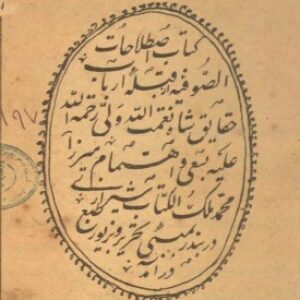 کتاب اصطلاحات
الصوفیه از قبلهٔ ارباب
حقایق شاه نعمت الله ولی رحمة الله
علیه بسعی و اهتمام میرزا
محمد ملک الکتاب شیرازی
در بندر بمبئی بتحریر و بزیور طبع
در آمد
۱۹۷